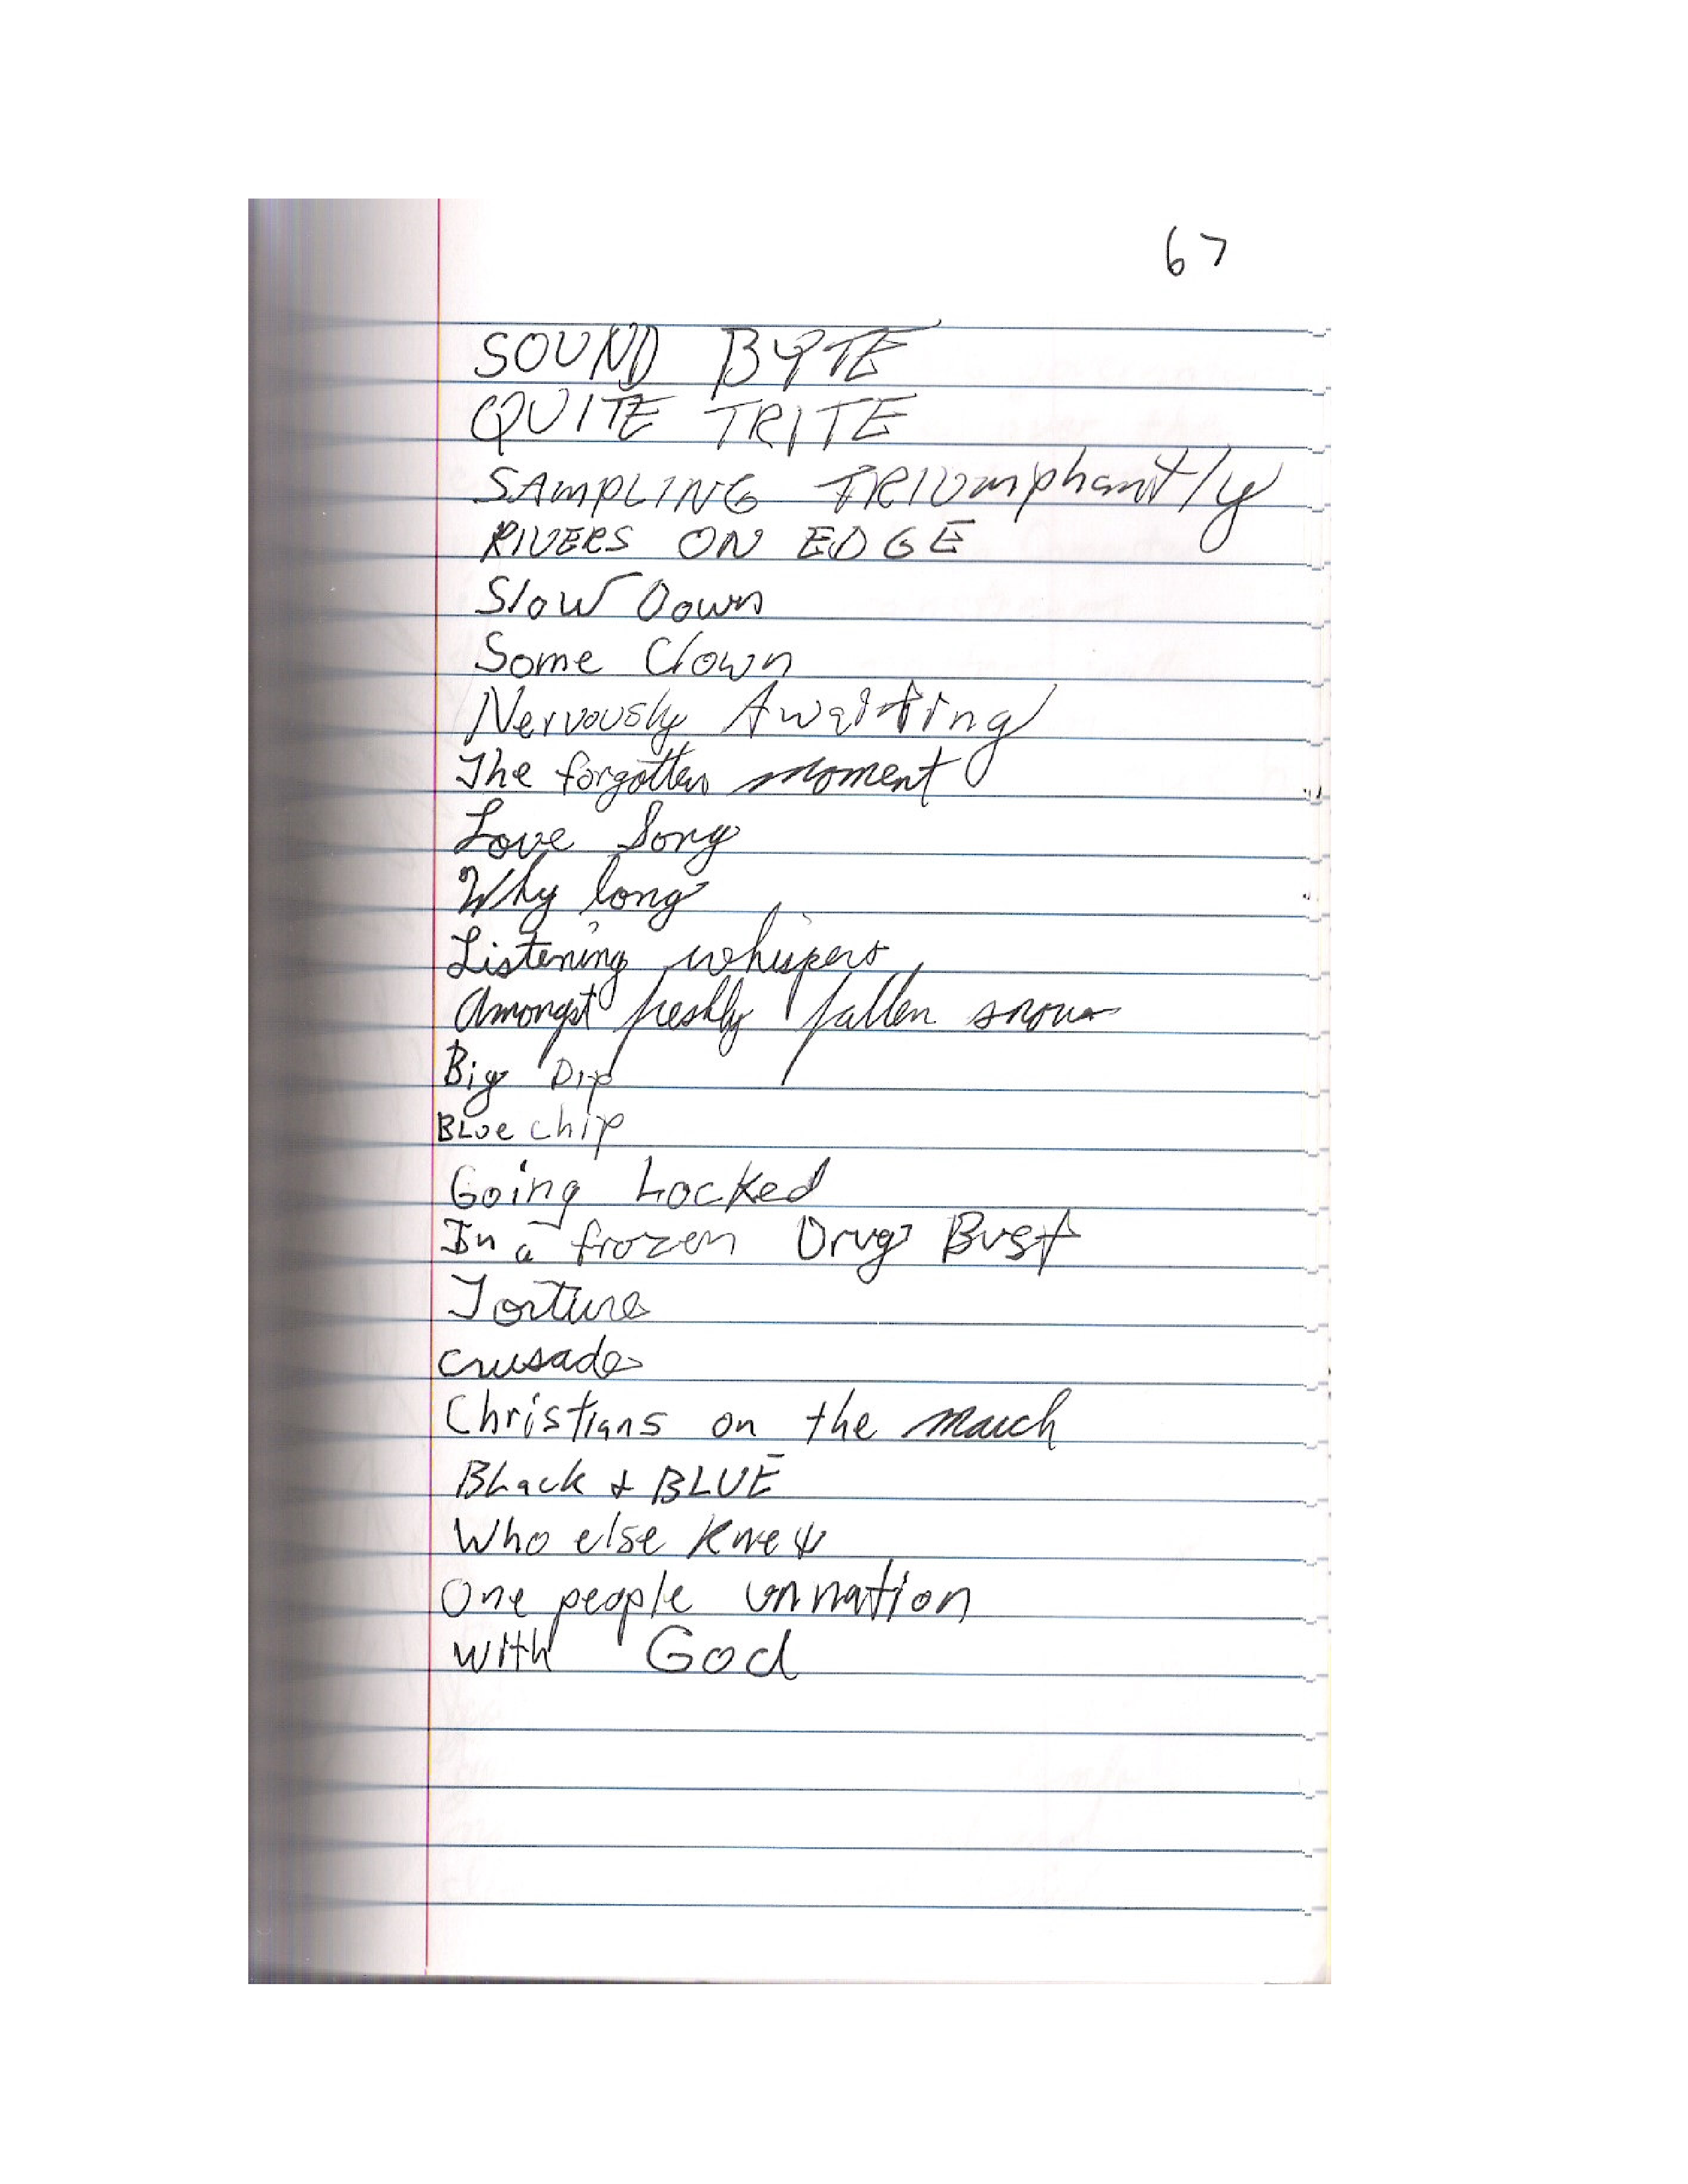 67
SOUND BYTE
QUITE TRITE
SAMPLING TRIUmphantly
RIVERS ON EDGE
Slow Down
Some Clown
Nervously Awaiting
The forgotten moment
Love Song
Why long
Listening whispers
Amongst freshly fallen snow
Big Dip
BLUe chip
Going Locked
In a frozen Drug Bust
Torture
crusade
Christians on the march
BLack & BLUE
Who else knew
One people un nation
with God